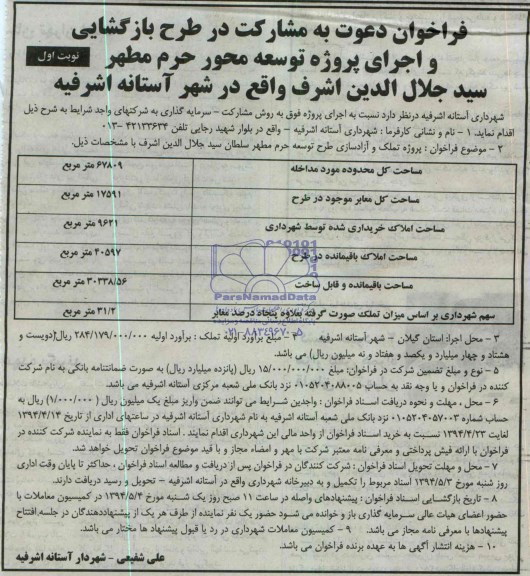 فراخوان دعوت به مشارکت در طرح بازگشایی
و اجرای پروژه توسعه محور حرم مطهر
نوبت اول
سید جلال الدین اشرف واقع در شهر آستانه اشرفیه
شهرداری آستانه اشرفیه درنظر دارد نسبت به اجرای پروژه فوق به روش مشارکت – سرمایه گذاری به شرکتهای واجد شرایط به شرح ذیل
اقدام نماید. ۱ – نام و نشانی کارفرما : شهرداری آستانه اشرفیه – واقع در بلوار شهید رجایی تلفن ۴۲۱۳۳۶۳۴ –۰۱۳
۲ – موضوع فراخوان : پروژه تملک و آزادسازی طرح توسعه حرم مطهر سلطان سید جلال الدین اشرف با مشخصات ذیل.
مساحت کل محدوده مورد مداخله ۶۷۸۰۹ متر مربع
مساحت کل معابر موجود در طرح ۱۷۵۹۱ متر مربع
مساحت املاک خریداری شده توسط شهرداری ۹۶۲۱ متر مربع
مساحت املاک باقیمانده در طرح ۴۰۵۹۷ متر مربع
مساحت باقیمانده و قابل ساخت ۳۰۳۳۸/۵۶ متر مربع
سهم شهرداری بر اساس میزان تملک صورت گرفته بعلاوه پنجاه درصد معابر ۳۱/۲ متر مربع
ParsNamadData
۰۲۱-۸۸۳۴۹۶۷۰-۵
۳ – محل اجرا: استان گیلان – شهر آستانه اشرفیه ۴ – مبلغ برآورد اولیه تملک : برآورد اولیه ۲۸۴/۱۷۹/۰۰۰/۰۰۰ ریال(دویست و
هشتاد و چهار میلیارد و یکصد و هفتاد و نه میلیون ریال) می باشد.
۵ – نوع و مبلغ تضمین شرکت در فراخوان: مبلغ ۱۵/۰۰۰/۰۰۰/۰۰۰ ریال (پانزده میلیارد ریال) به صورت ضمانتنامه بانکی به نام شرکت
کننده در فراخوان و یا وجه نقد به حساب ۰۱۰۵۲۰۴۰۸۸۰۰۵ نزد بانک ملی شعبه مرکزی آستانه اشرفیه می باشد.
۶ – محل ، مهلت و نحوه دریافت اسناد فراخوان : واجدین شرایط می توانند ضمن واریز مبلغ یک میلیون ریال ( ۱/۰۰۰/۰۰۰) ریال به
حساب شماره ۰۱۰۵۲۰۴۰۵۷۰۰۳ نزد بانک ملی شعبه آستانه اشرفیه به نام شهرداری آستانه اشرفیه در ساعتهای اداری از تاریخ ۱۳۹۴/۴/۱۳
لغایت ۱۳۹۴/۴/۲۳ نسبت به خرید اسناد فراخوان از واحد مالی این شهرداری اقدام نمایند . اسناد فراخوان فقط به نماینده شرکت کننده در
فراخوان با ارائه فیش پرداختی و معرفی نامه معتبر شرکت با مهر و امضاء مجاز و با قید موضوع فراخوان تحویل خواهد شد.
۷ – محل و مهلت تحویل اسناد فراخوان : شرکت کنندگان در فراخوان پس از دریافت و مطالعه اسناد فراخوان ، حداکثر تا پایان وقت اداری
روز شنبه مورخ ۱۳۹۴/۵/۳ اسناد مربوط را تکمیل و به دبیرخانه شهرداری واقع در آستانه اشرفیه – تحویل و رسید دریافت دارند.
۸ – تاریخ بازگشایی اسناد فراخوان : پیشنهادهای واصله در ساعت ۱۱ صبح روز یک شنبه مورخ ۱۳۹۴/۵/۴ در کمیسیون معاملات با
حضور اعضای هیات عالی سرمایه گذاری باز و خوانده می شود حضور یک نفر نماینده از طرف هر یک از پیشنهاددهندگان در جلسه افتتاح
پیشنهادها با معرفی نامه مجاز می باشد. ۹ – کمیسیون معاملات شهرداری در رد یا قبول پیشنهاد ها مختار می باشد.
۱۰ – هزینه انتشار آگهی ها به عهده برنده فراخوان می باشد.
علی شفیعی – شهردار آستانه اشرفیه